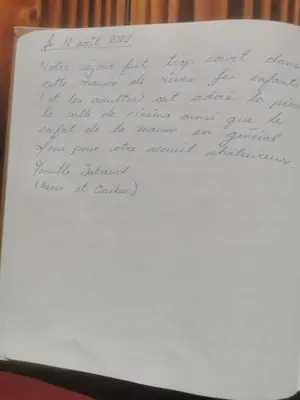 Le 12 août 2022
Notre séjour fut trop court dans
cette maison de rêves. Les enfants
(et les adultes) ont adoré la pisc
la salle de cinéma ainsi que le
confort de la maison en général
pour votre accueil chaleureux,
Famille
(Nice et Québec)